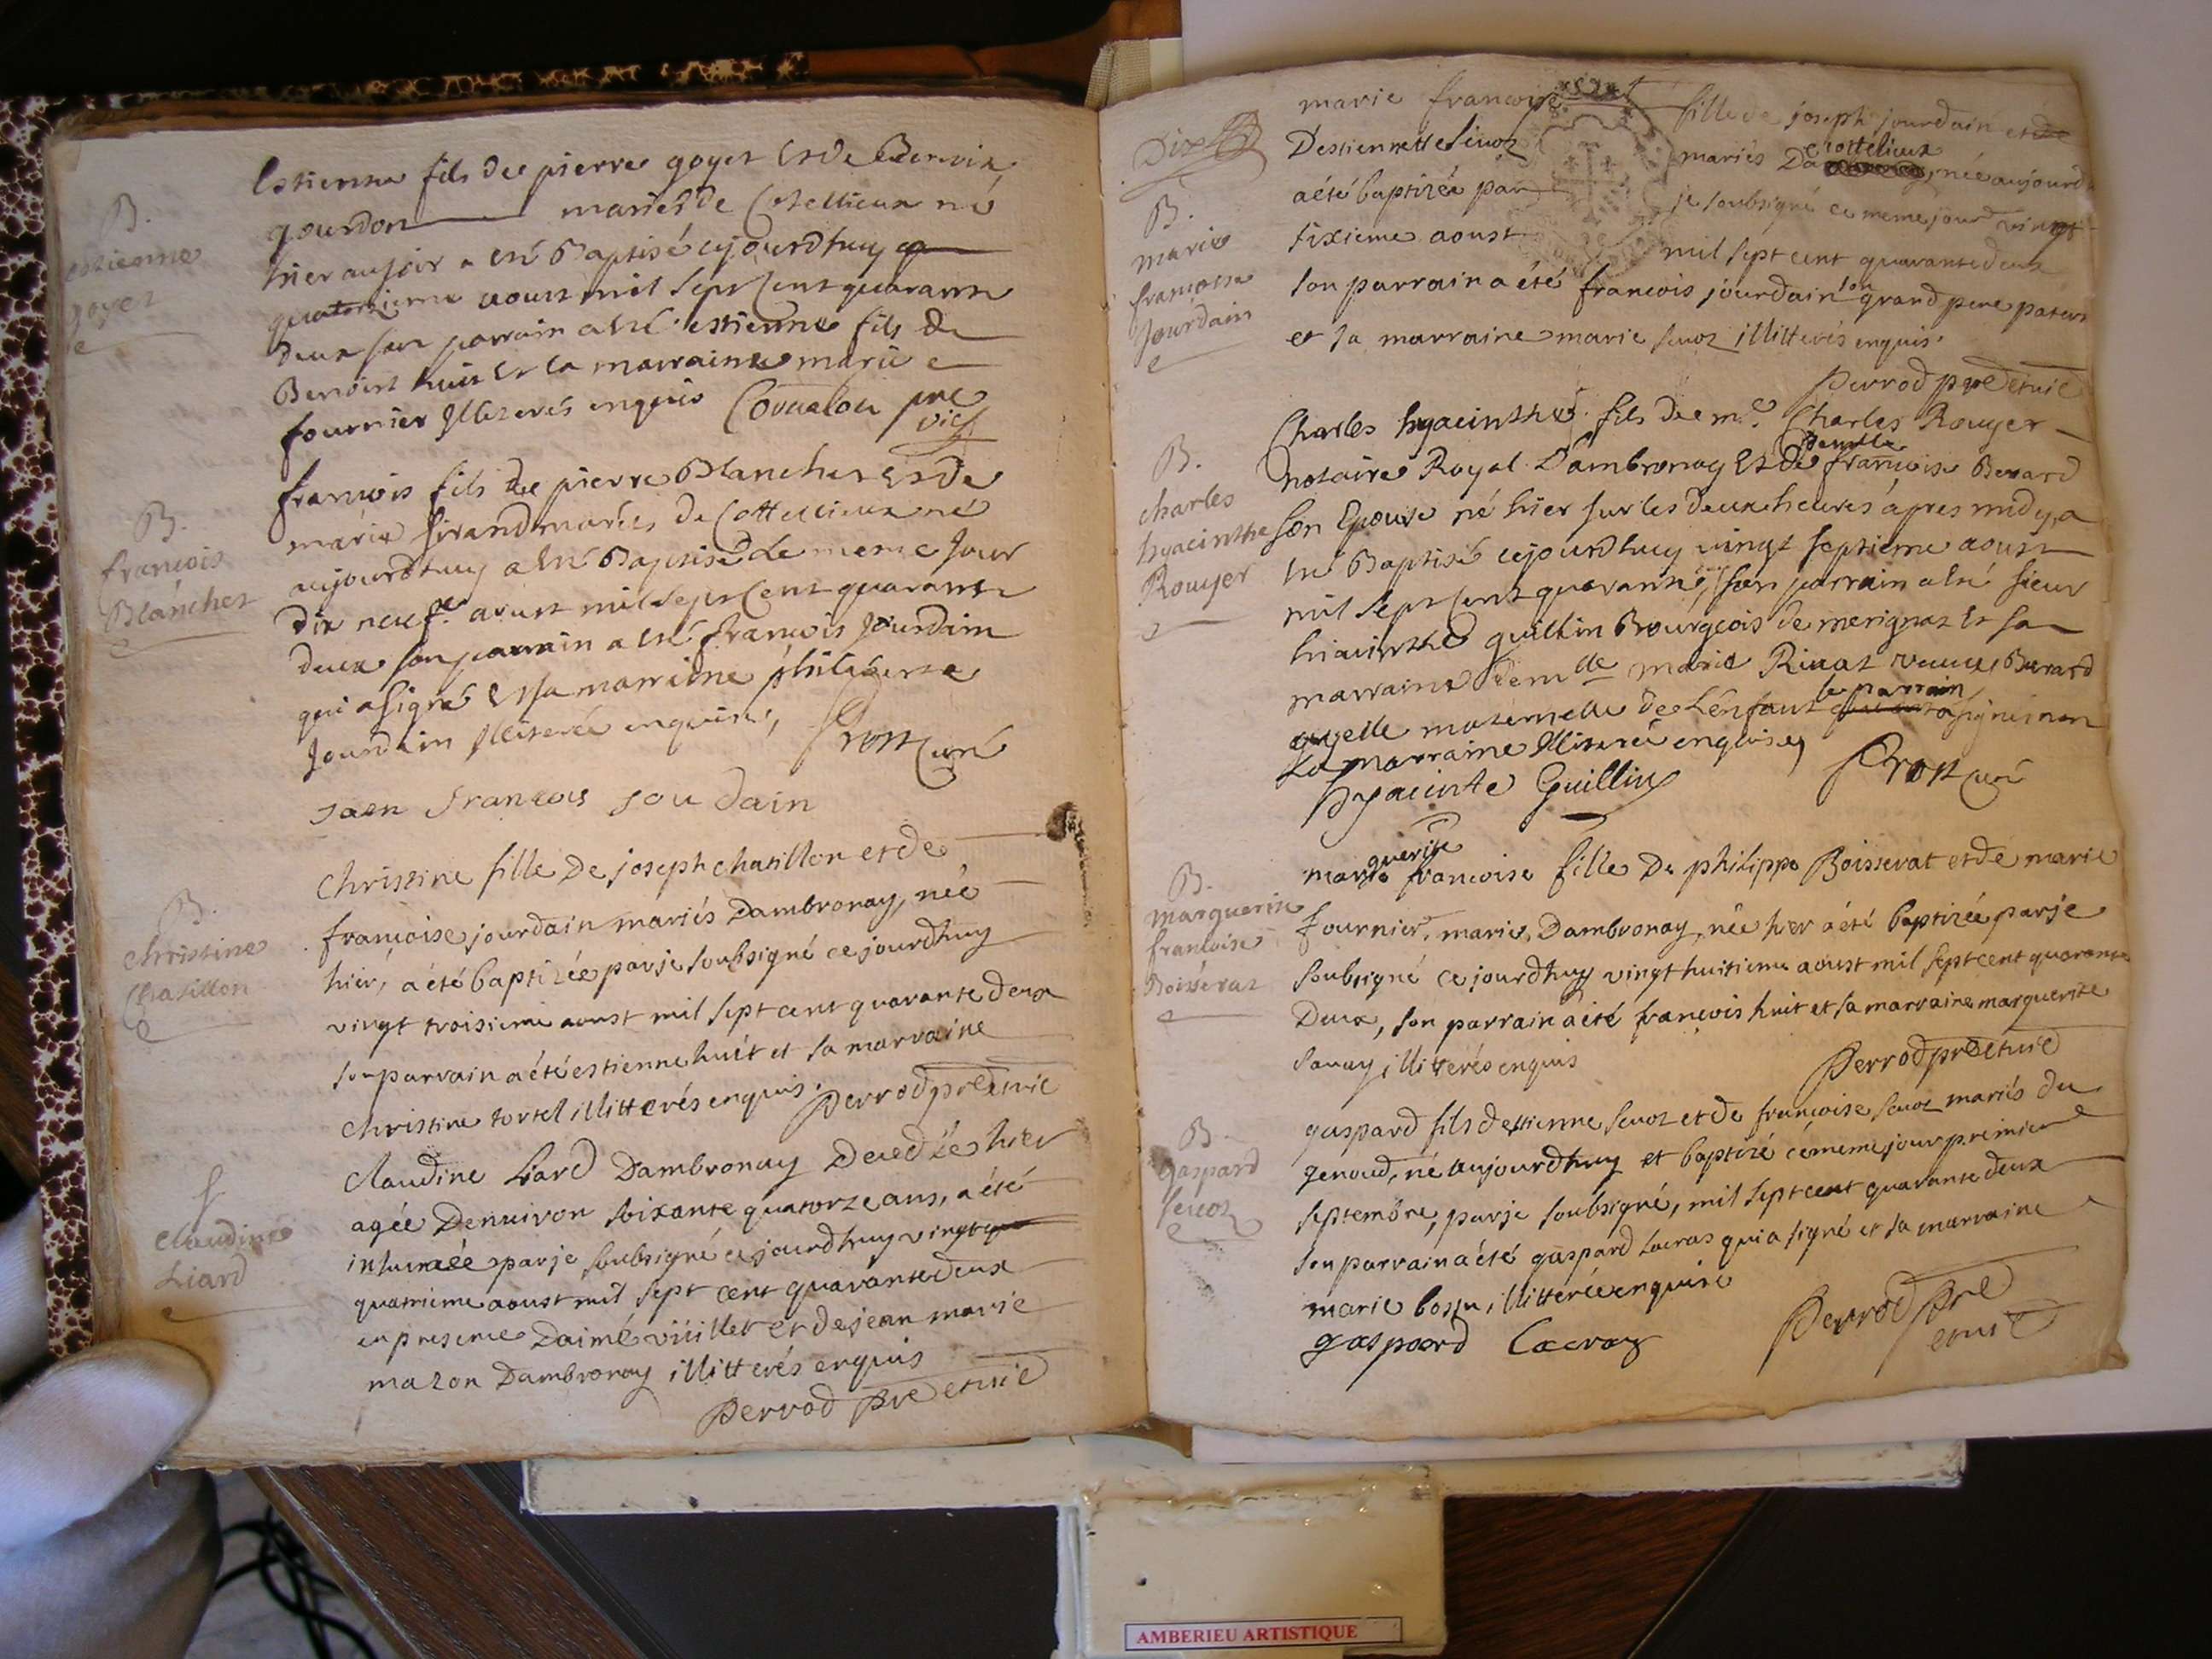 B.
estienne
goyet
Estienne fils de pierre goyet et de Benoite
gourdon mariés de Cotellieux né
hier au soir a été Baptisé cejourdhuy
quatorzieme aoust mil sept Cent quarante
deux son parrain a été estienne fils de
Benoist huit et la marraine marie
fournier Illiterés enquis pre
vic
B.
francois
Blanchet
francois fils de pierre Blanchet et de
marie Sirand mariés de Cottellieux né
aujourdhuy a été Baptisé le meme Jour
dix neufe. aoust mil sept Cent quarante
deux son parrain a été francois Jourdain
qui a signé et sa marraine philiberte
Jourdain Illiterée enquise,
Prost Curé
jaen francois jou dain
B.
christine
Chatillon
Christine fille De joseph chatillon et de
francoise jourdain mariés Dambronay, née
hier, a été baptizée par je soubsigné ce jourdhuy
vingt troisieme aoust mil sept cent quarante deux
son parrain a été estienne huit et sa marraine
christine tortel illitterés enquis. Perrod pre et vic
S
claudine
Liard
Claudine Liard Dambronay Decedée hier
agée Denviron soixante quatorze ans, a été
inhumée par je soubsigné ce jourdhuy vingt
quatrieme aoust mil sept cent quarante deux
en presence Daimé viuillet et de jean marie
mazon Dambronay illitterés enquis
Perrod pre et vic
Dix
B.
marie
francoise
Jourdain
marie francoise fille de joseph jourdain et de
Destiennette Sevoz mariés De cottelieux, née aujourd
a été baptizée par je soubsigné ce meme jour vingt
sixieme aoust mil sept cent quarante deux
son parrain a été francois jourdain son grand pere patern
et sa marraine marie sevoz illitterés enquis.
Perrod pre et vic
B.
charles
hyacinthe
Rouyer
Charles hyacinthe fils de me. Charles Rouyer
notaire Royal Dambronay et de Demlle francoise Berard
son Epouse né hier sur les deux heures apres midy, a
été Baptisé cejourdhuy vingt septieme aoust
mil sept Cent quarante, son parrain a été sieur
hiacinthe guillin Bourgeois de merignat et sa
marraine demlle marie Rivat veuve Berard
ayelle maternelle de Lenfant le parrain a signé non
La marraine Illiterée enquise,
hyacinte Guillin Prost curé
B.
marguerite
francoise
Boisserat
marguerite francoise fille De philippe Boisserat et de marie
fournier, mariés Dambronay, née hier a été baptizée par je
soubsigné ce jourdhuy vingt huitieme aoust mil sept cent quarante
Deux, son parrain a été francois huit et sa marraine marguerite
savay illitterés enquis
Perrod pre et vic
B.
gaspard
sevoz
gaspard fils destienne sevoz et de francoise sevoz mariés du
genoud, né aujourdhuy et baptizé ce meme jour premier
septembre, par je soubsigné, mil sept cent quarante deux
son parrain a été gaspard Lacras qui a signé et sa marraine
marie bossu, illitterée enquise
gaspard Lacras Perrod pre
et vic
AMBERIEU ARTISTIQUE